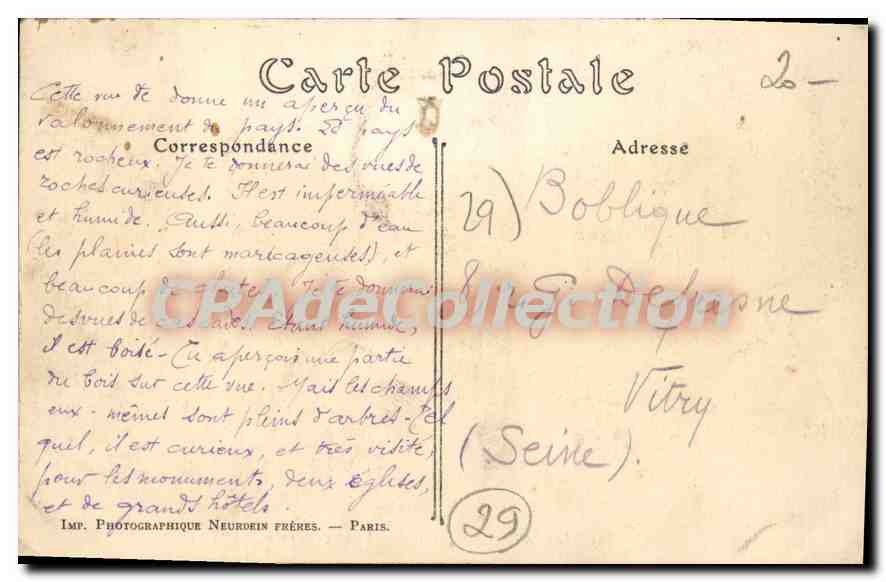 Carte Postale
20 —
Cette vue te donne un aperçu du
valonnement du pays. Le pays
Correspondance
est rocheux. Je te donnerai des vues de
roches curieuses. Il est imperméable
et humide. Aussi, beaucoup d'eau
(les plaines sont marécageuses), et
beaucoup de chutes. Je te donnerai
des vues de cascades. Etant humide,
il est boisé - Tu aperçois une partie
du bois sur cette vue. Mais les champs
eux-mêmes sont pleins d'arbres - Tel
quel, il est curieux, et très visité,
pour les monuments, deux églises,
et de grands hôtels.
IMP. PHOTOGRAPHIQUE NEURDEIN FRÈRES. — PARIS.
Adresse
29) Boblique
8 G
Vitry
(Seine).
29
CPAdeCollection